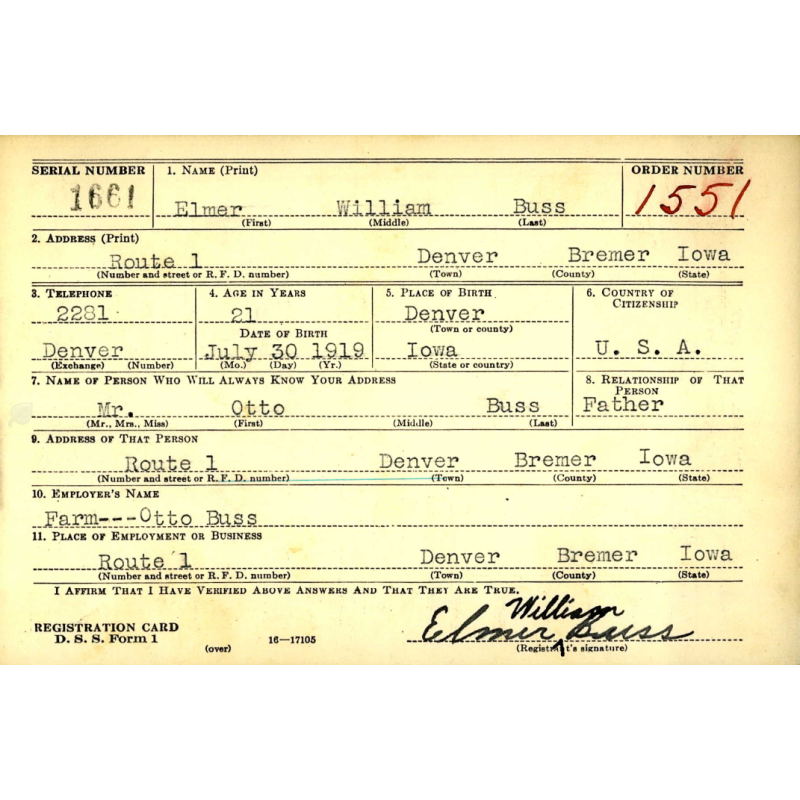 SERIAL NUMBER 1. NAME (Print) ORDER NUMBER
1661 Elmer William Buss 1551
(First) (Middle) (Last)
2. ADDRESS (Print)
Route 1 Denver Bremer Iowa
(Number and street or R. F. D. number) (Town) (County) (State)
3. TELEPHONE 4. AGE IN YEARS 5. PLACE OF BIRTH 6. COUNTRY OF CITIZENSHIP
2281 21 Denver
DATE OF BIRTH (Town or county)
Denver July 30 1919 Iowa U. S. A.
(Exchange) (Number) (Mo.) (Day) (Yr.) (State or country)
7. NAME OF PERSON WHO WILL ALWAYS KNOW YOUR ADDRESS 8. RELATIONSHIP OF THAT PERSON
Mr. Otto Buss Father
(Mr., Mrs., Miss) (First) (Middle) (Last)
9. ADDRESS OF THAT PERSON
Route 1 Denver Bremer Iowa
(Number and street or R. F. D. number) (Town) (County) (State)
10. EMPLOYER'S NAME
Farm---Otto Buss
11. PLACE OF EMPLOYMENT OR BUSINESS
Route 1 Denver Bremer Iowa
(Number and street or R. F. D. number) (Town) (County) (State)
I AFFIRM THAT I HAVE VERIFIED ABOVE ANSWERS AND THAT THEY ARE TRUE.
William
REGISTRATION CARD Elmer Buss
D. S. S. Form 1 16—17105
(over) (Registrant's signature)